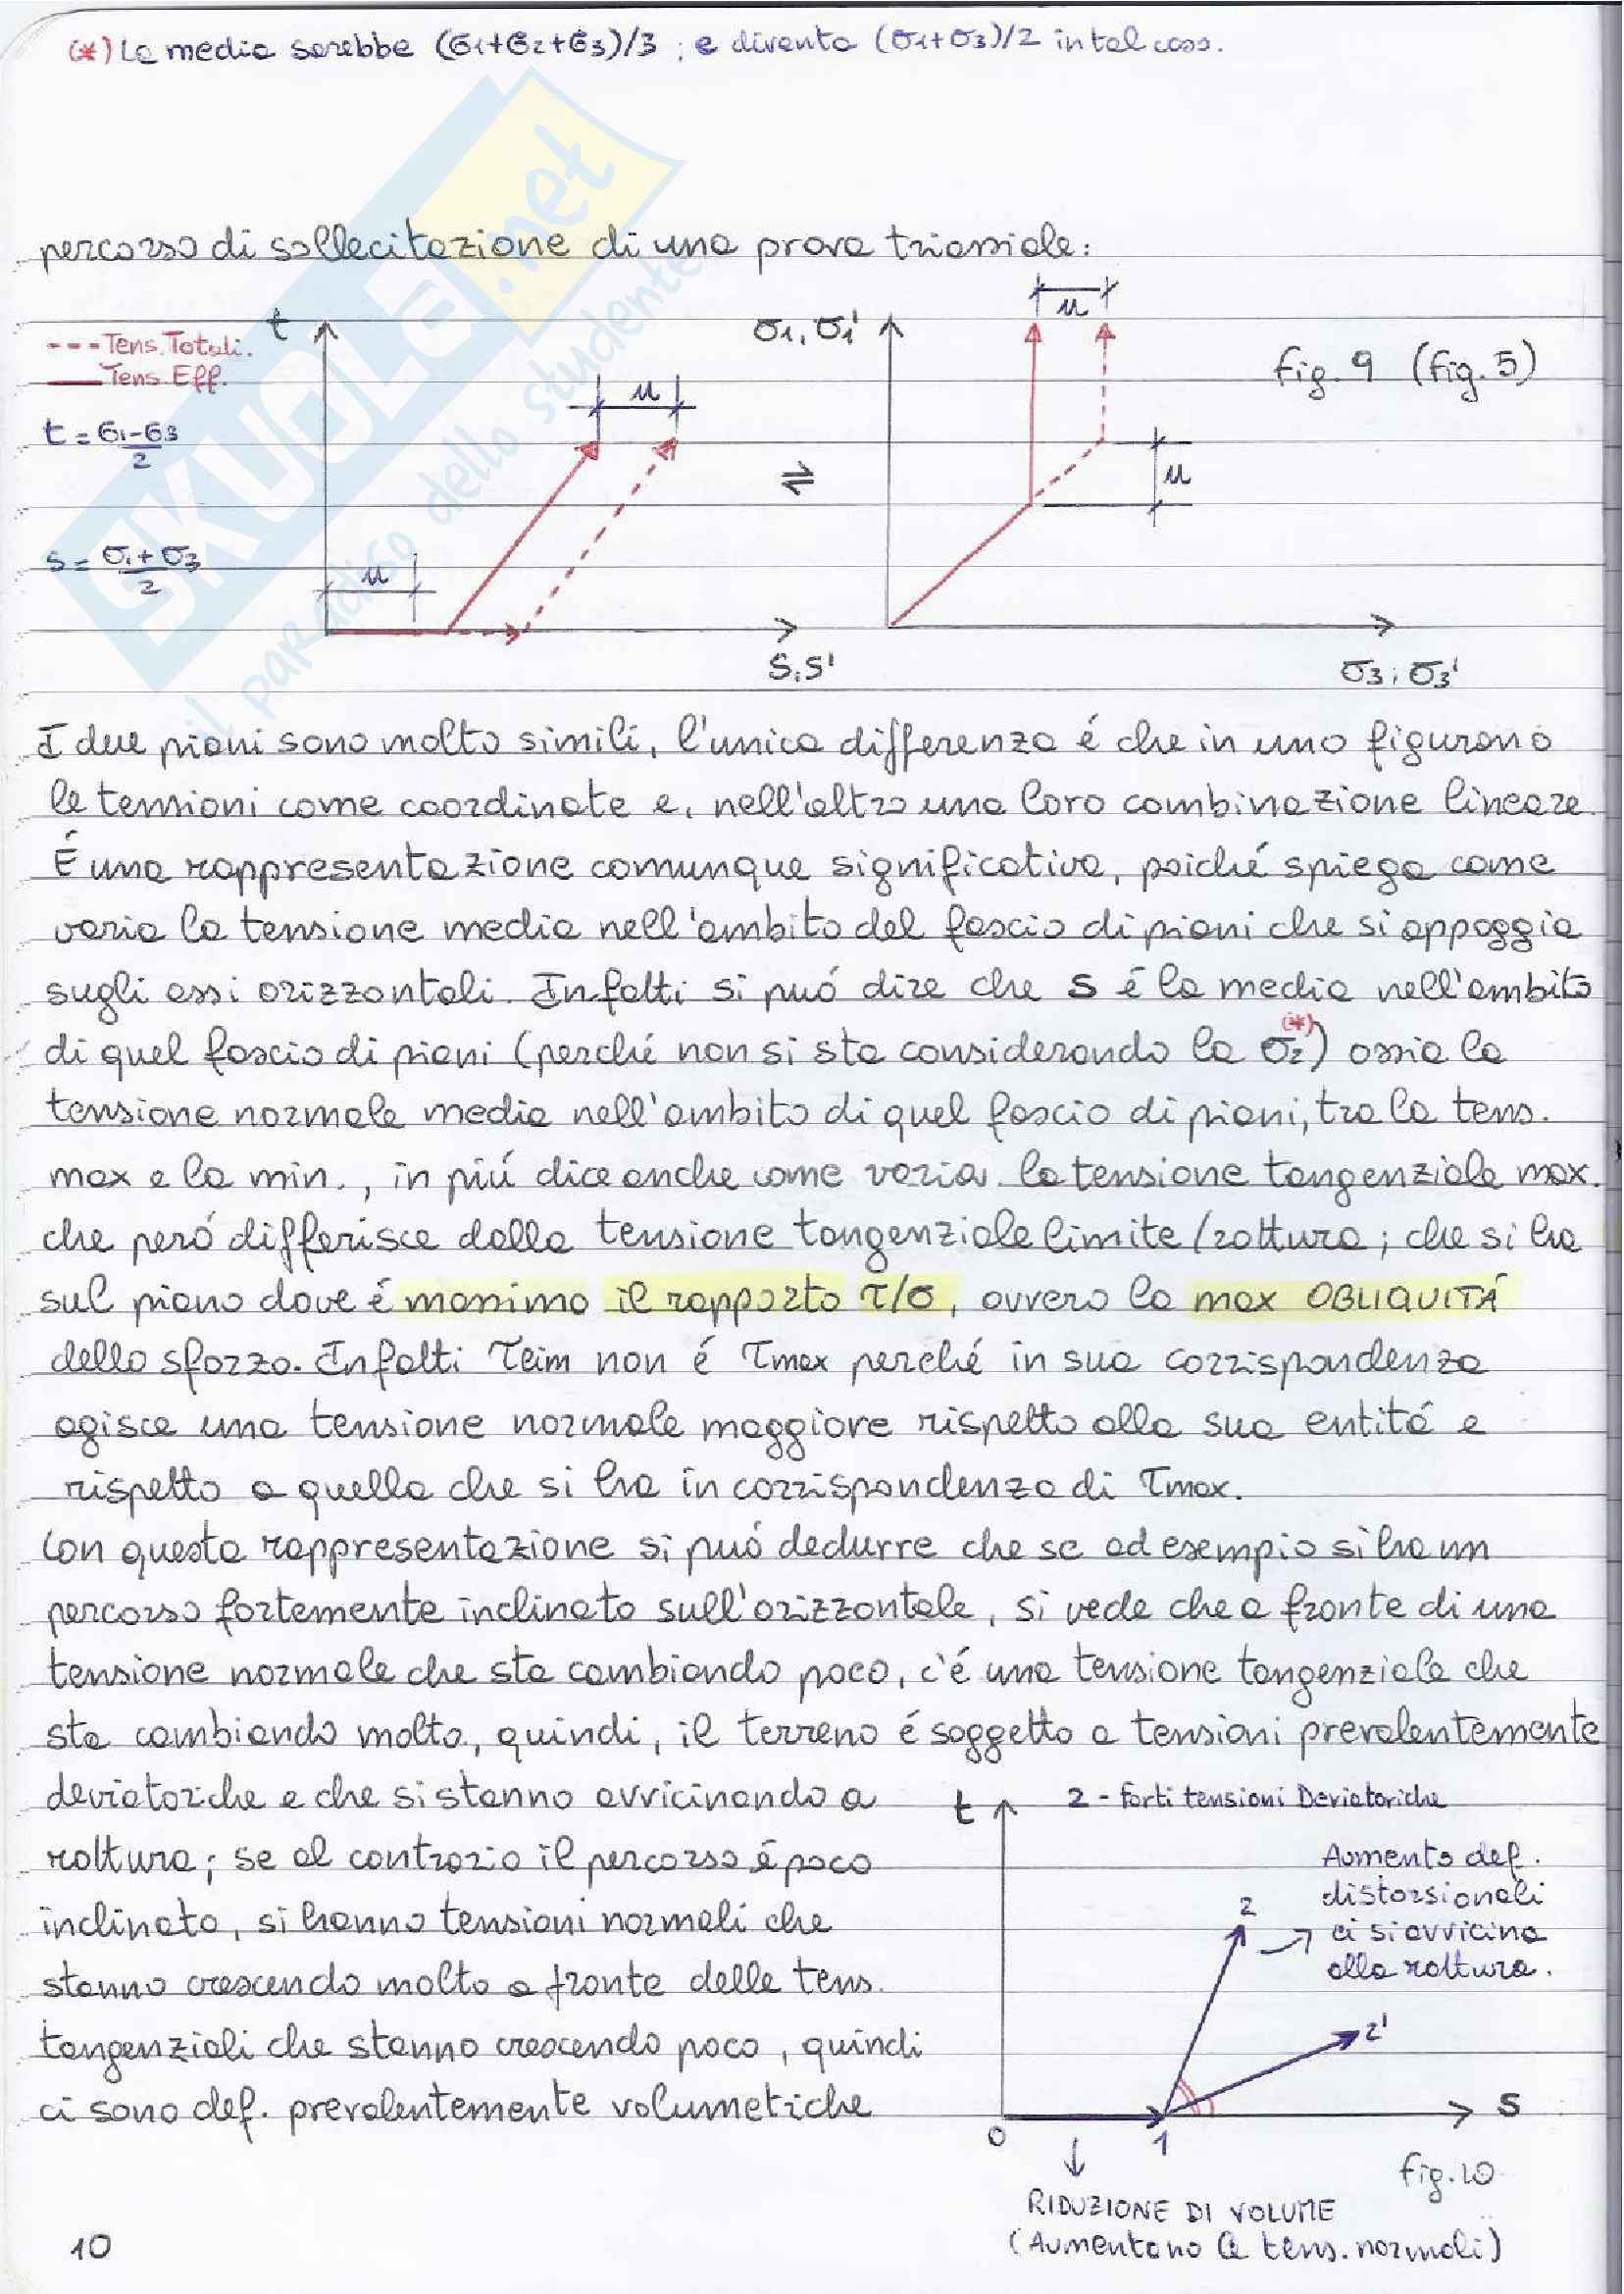 (*) La media sarebbe (σ1+σ2+σ3)/3 ; e diventa (σ1+σ3)/2 in tal caso.
percorso di sollecitazione di una prova triassiale:
--- Tens. Totali.
— Tens. Eff.
t = σ1-σ3
2
s = σ1+σ3
2
t
u
u
s, s'
⇌
σ1, σ1'
u
u
σ3, σ3'
fig. 9 (fig. 5)
I due piani sono molto simili, l'unica differenza é che in uno figurano
le tensioni come coordinate e, nell'altro una loro combinazione lineare.
É una rappresentazione comunque significativa, poiché spiega come
varia la tensione media nell'ambito del fascio di piani che si appoggia
sugli assi orizzontali. Infatti si puó dire che s é la media nell'ambito
di quel fascio di piani (perché non si sta considerando la σ2 (*)) ossia la
tensione normale media nell'ambito di quel fascio di piani, tra la tens.
max e la min., in piú dice anche come varia la tensione tangenziale max.
che peró differisce dalla tensione tangenziale limite/rottura; che si ha
sul piano dove é massimo il rapporto τ/σ, ovvero la max OBLIQUITÁ
dello sforzo. Infatti τlim non é τmax perché in sua corrispondenza
agisce una tensione normale maggiore rispetto alla sua entitá e
rispetto a quella che si ha in corrispondenza di τmax.
Con questa rappresentazione si puó dedurre che se ad esempio si ha un
percorso fortemente inclinato sull'orizzontale, si vede che a fronte di una
tensione normale che sta cambiando poco, c'é una tensione tangenziale che
sta cambiando molto, quindi, il terreno é soggetto a tensioni prevalentemente
deviatoriche e che si stanno avvicinando a
rottura; se al contrario il percorso é poco
inclinato, si hanno tensioni normali che
stanno crescendo molto a fronte delle tens.
tangenziali che stanno crescendo poco, quindi
ci sono def. prevalentemente volumetiche
t
2 - Forti tensioni Deviatoriche
Aumento def.
distorsionali
ci si avvicina
alla rottura.
2
2'
s
0
1
fig. 10
RIDUZIONE DI VOLUME
(Aumentano le tens. normali)
10
SKUOLA.net
il paradiso dello studente